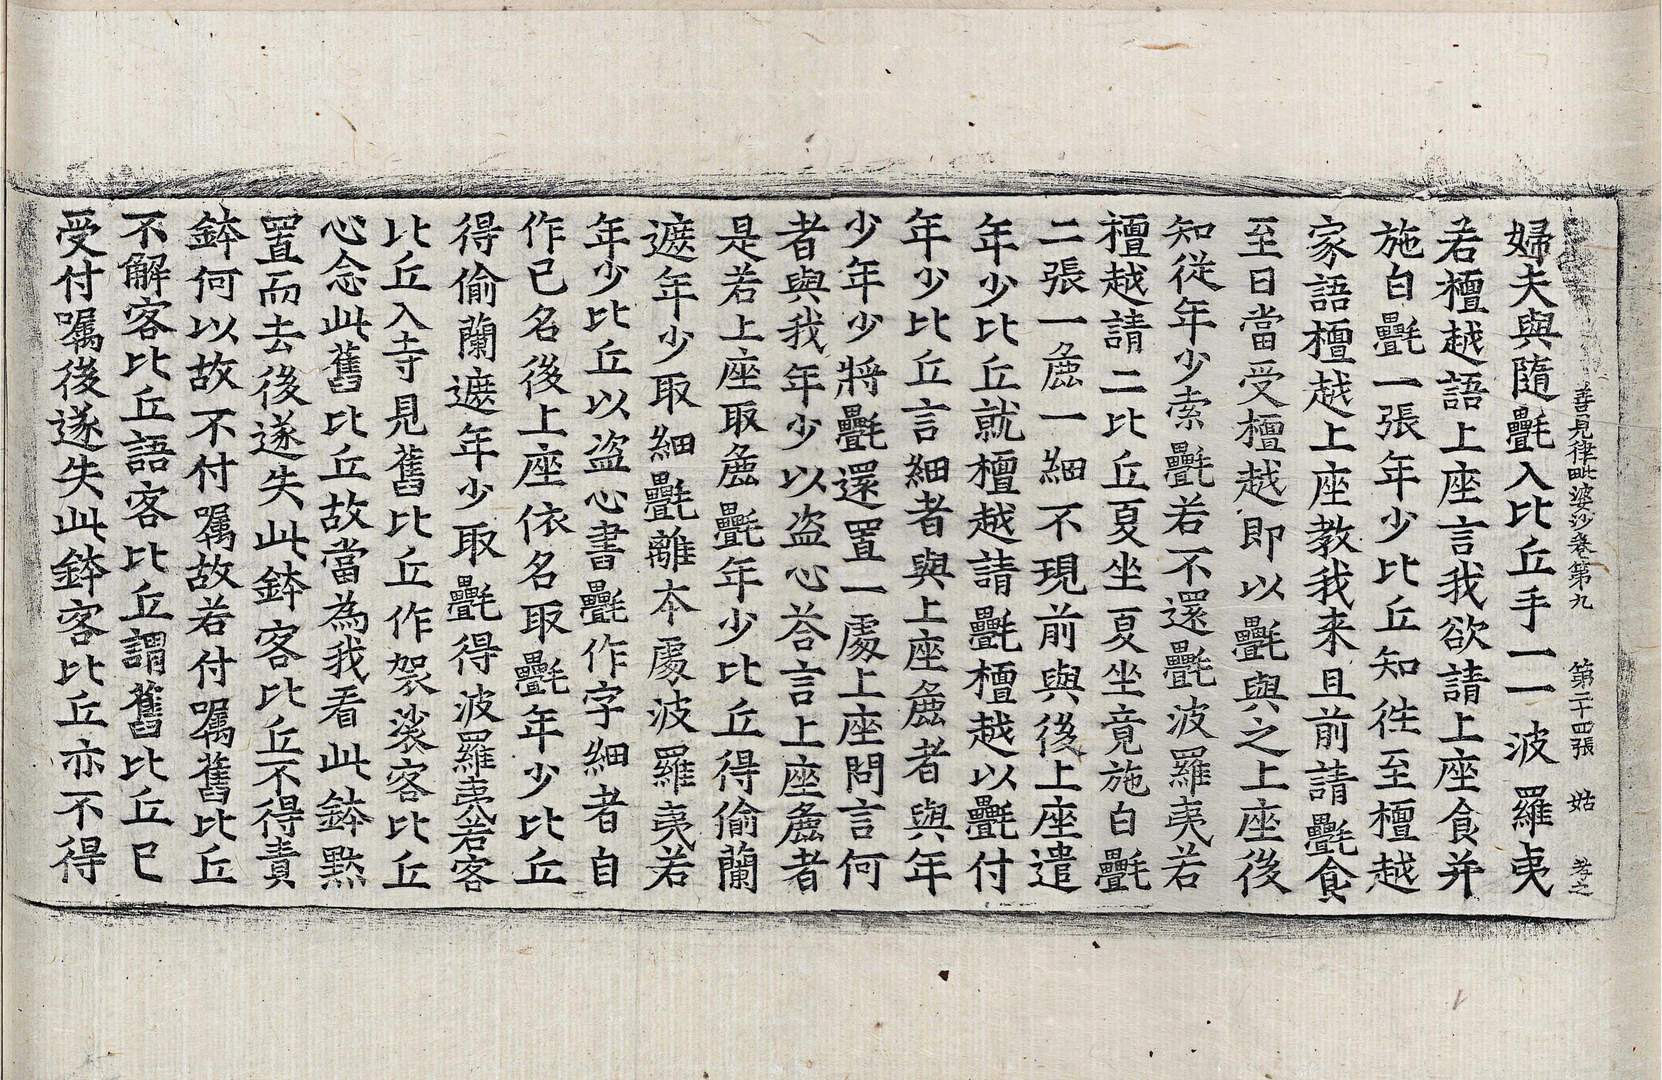 善見律毗婆沙卷第九 第二十四張 姑 孝之
婦夫與隨㲲入比丘手一一波羅夷
若檀越語上座言我欲請上座食并
施白㲲一張年少比丘知徃至檀越
家語檀越上座教我来且前請㲲食
至日當受檀越即以㲲與之上座後
知從年少索㲲若不還㲲波羅夷若
檀越請二比丘夏坐夏坐竟施白㲲
二張一麁一細不現前與後上座遣
年少比丘就檀越請㲲檀越以㲲付
年少比丘言細者與上座麁者與年
少年少將㲲還置一處上座問言何
者與我年少以盗心荅言上座麁者
是若上座取麁㲲年少比丘得偷蘭
遮年少取細㲲離本處波羅夷若
年少比丘以盗心書㲲作字細者自
作已名後上座依名取㲲年少比丘
得偷蘭遮年少取㲲得波羅夷若客
比丘入寺見舊比丘作袈裟客比丘
心念此舊比丘故當為我看此鉢黙
置而去後遂失此鉢客比丘不得責
鉢何以故不付嘱故若付嘱舊比丘
不解客比丘語客比丘謂舊比丘已
受付嘱後遂失此鉢客比丘亦不得